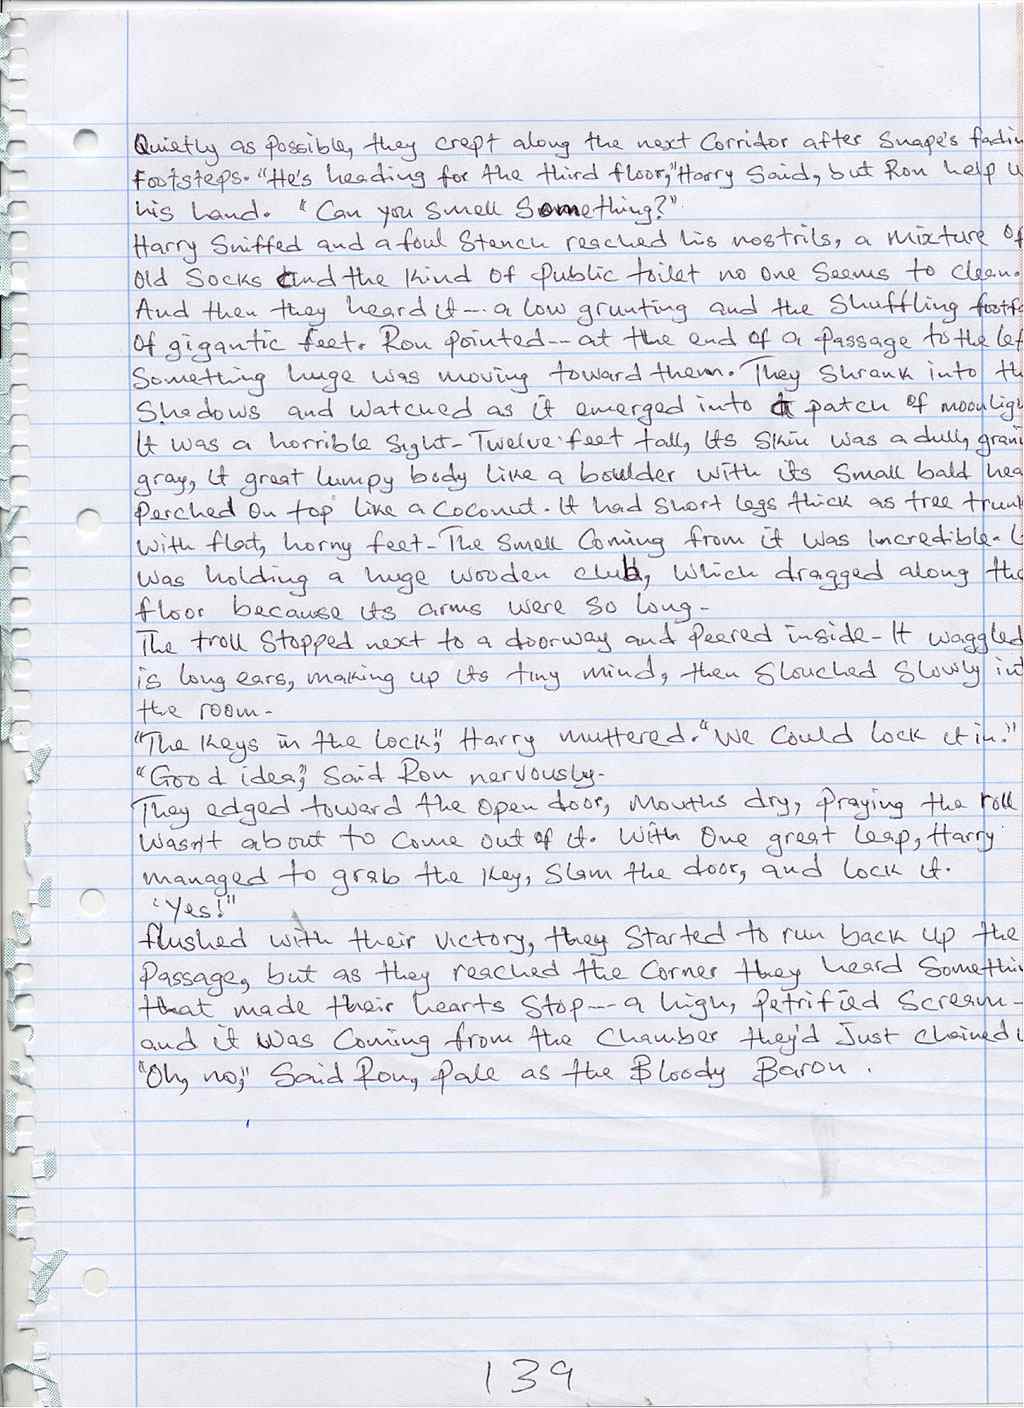 Quietly as possible, they crept along the next Corridor after Snape's fadin
Footsteps. "He's heading for the third floor," Harry Said, but Ron help u
his hand. "Can you smell Something?"
Harry Sniffed and a foul Stench reached his nostrils, a mixture of
Old Socks and the kind of public toilet no one Seems to clean.
And then they heard it-- a low grunting and the Shuffling footfa
Of gigantic feet. Ron pointed-- at the end of a passage to the lef
Something huge was moving toward them. They Shrank into th
Shadows and watched as it emerged into a patch of moonlig
It was a horrible Sight- Twelve feet tall, its Skin was a dull, grani
gray, it great lumpy body like a boulder with its Small bald hea
Perched On top like a Coconut. It had Short legs thick as tree trunk
with flat, horny feet- The Smell Coming from it was Incredible. I
was holding a huge wooden club, which dragged along the
floor because its arms were so long-
The troll Stopped next to a doorway and Peered inside- It waggled
is long ears, making up its tiny mind, then Slouched Slowly int
the room-
"The keys in the lock," Harry muttered. "We Could lock it in."
"Good idea," Said Ron nervously-
They edged toward the open door, mouths dry, Praying the roll
Wasn't about to Come out of it. With One great leap, Harry
managed to grab the key, Slam the door, and lock it.
'Yes!"
flushed with their victory, they Started to run back up the
Passage, but as they reached the Corner they heard Somethi
that made their hearts Stop--- a high, petrified Scream-
and it Was Coming from the Chamber they'd Just Chained u
"Oh, no," Said Ron, Pale as the Bloody Baron.
139